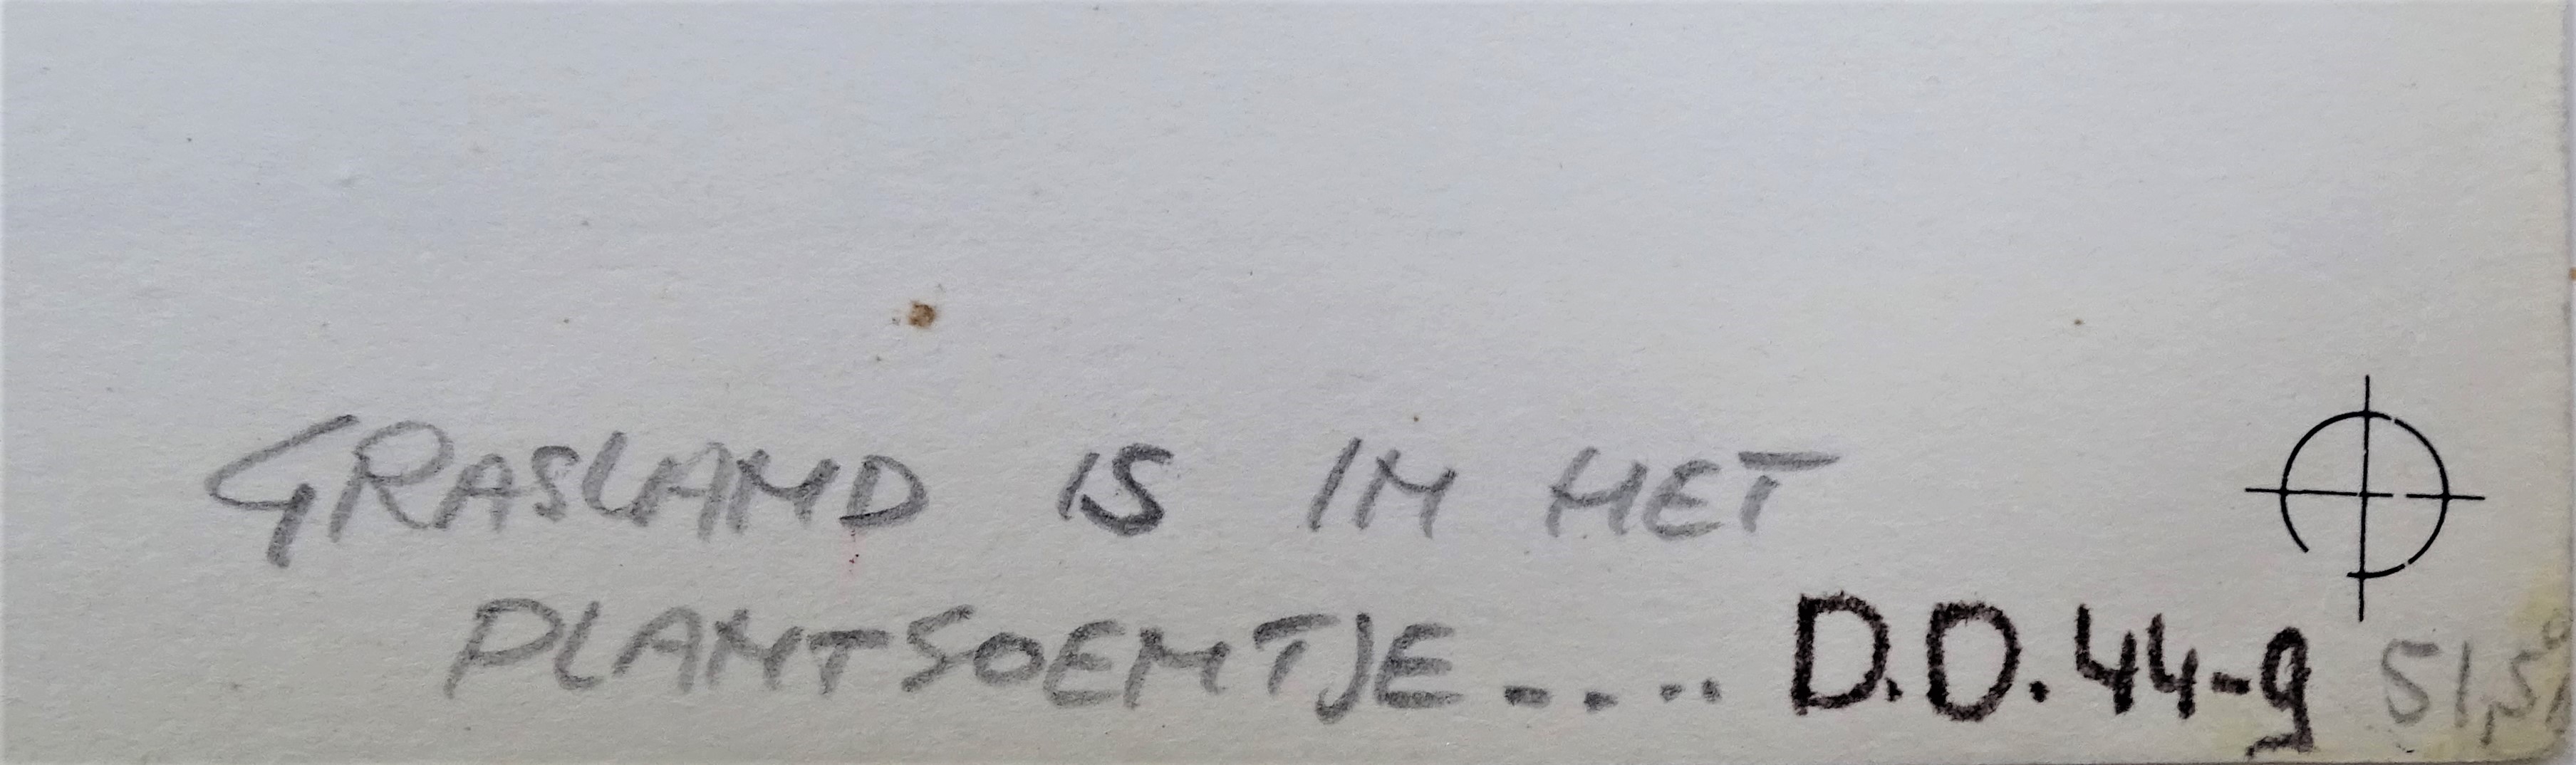 GRASLAND IS IN HET
PLANTSOENTJE.... D.D. 44-g